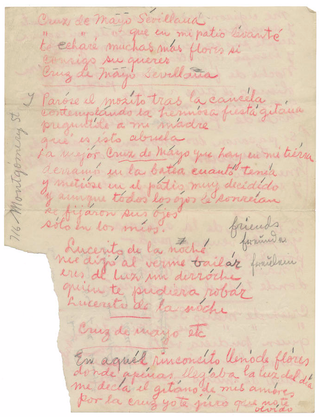 Cruz de Mayo Sevillana
" " " que en mi patio
E echaré muchas mas flores si
consigo su querer
Cruz de Mayo Sevellana
Paróse el mozito tras la cancela
contemplando la hermosa fiesta gitana
preguntóle a mi madre
que es esto abuela
La mejor Cruz de Mayo que hay en mi tierra
derramó en la bolsa cuanto tenia
y metióse en el patio muy decidido
y aunque todos los ojos
se fijáron sus ojos
sólo en los mios.
716 Montgomery St.
friends
Lucerito de la noche
me dijo al verme bailár
eres de luz un derroche
quien te pudiera robár
Lucereto de la noche
Cruz de mayo etc
En aquél rinconcito lleno de flores
donde apenas llegaba la luz del dia
me decia el gitano de mis amores
Por la cruz yo te juro que no te
olvido